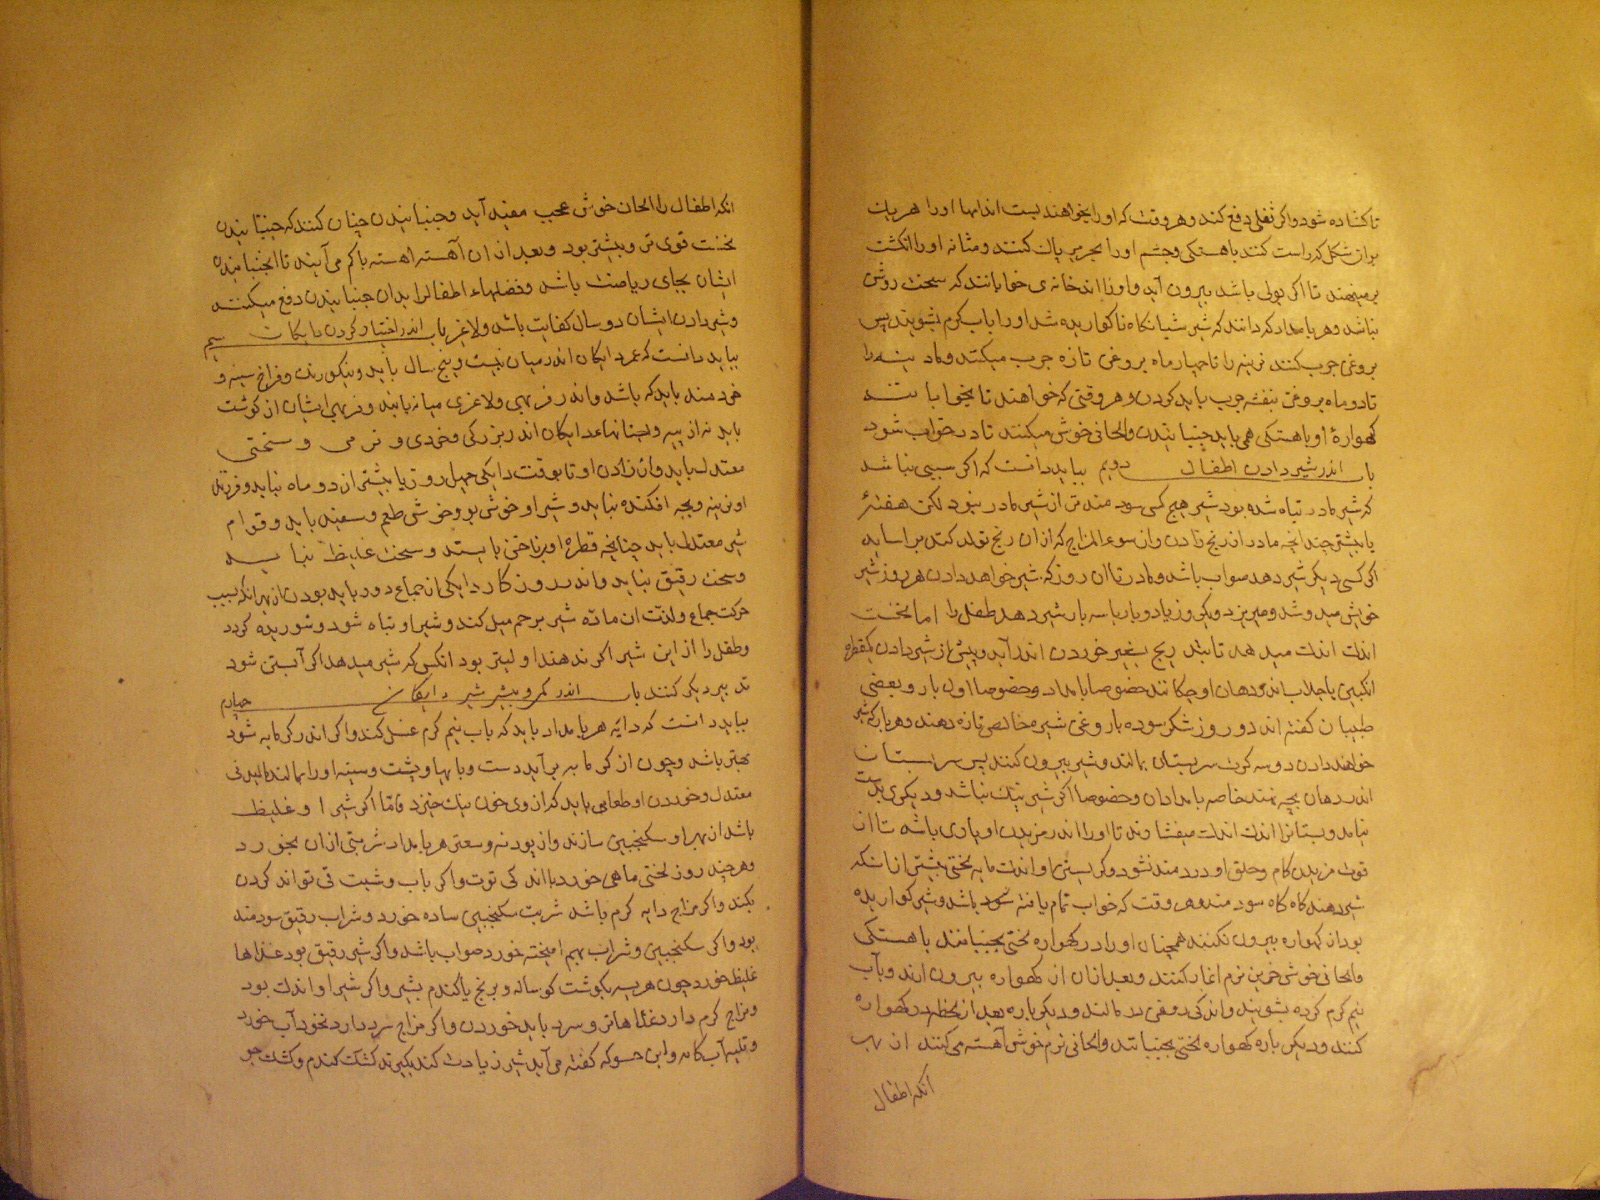 تا کشاده شود و اکر ثفلی دفع کند و هر وقت که او را بخواهند بست اندامها او را هر یک
بر ان شکل که راست کنند باهستکی و چشم او را بحریر پاک کنند و مثانه او را انکشت
بر مینهند تا اکر بولی باشد بیرون آید و او را اندر خانه ی خوابانند که سخت روشن
نباشد و هر بامداد که دانند که شیر شبانکاه ناکواریده شد او را باب کرم بشویند پس
بروغن چرب کنند نرینه را تا چهار ماه بروغن تازه چرب میکنند و مادینه را
تا دو ماه بروغن بنفشه چرب باید کردن و هر وقتی که خواهند تا بخوابانند
کهوارۀ او باهستکی همی باید جنبانیدن و الحانی خوش میکنند تا در خواب شود
باب اندر شیر دادن اطفال دویم بباید دانست که اکر سببی نباشد
که شیر مادر تباه شده بود شیر هیچ کس سودمندتر از شیر مادر نبود لکن هفتۀ
یا بیشتر چندانچه مادر از رنج زادن و از سوء المزاج که از ان رنج تولد کند براساید
اکر کسی دیکر شیر دهد صواب باشد و مادر تا ان روز که شیر خواهد دادن هر روز شیر
خویش میدوشد و میریزد و یکروز یا دو بار یا سه بار شیر دهد طفل را اما نخست
اندک اندک میدهد تا بتدریج بشیر خوردن اندر آید و پیش از شیر دادن یکقطره
انکبین یا جلاب اندر دهان او چکانند خصوصا بامداد و خصوصا اول بار و بعضی
طبیبان کفته اند دو روز شکر سوده با روغن شیر مخالص تازه دهند و هر بار که شیر
خواهند دادن دو سه کرت سر پستان بمالند و شیر بیرون کنند پس سر پستان
اندر دهان بچه نهند خاصه بامدادان و خصوصا اکر شیر نیک نباشد و دیکری بدست
نیامد و پستانرا اندک اندک میفشارند تا او را اندر مزیدن او یاری باشد تا از
قوت مزیدن کام و حلق او دردمند نشود و کریستن او اندک مایه لختی پیشتر از انکه
شیر دهند کاه کاه سودمند و هر وقت که خواب تمام یافته شود باشد و شیر کواریده
بود از کهواره بیرون نکنند همچنان او را در کهواره لختی بجنبانند باهستکی
و الحانی خوش حزین نرم اغاز کنند و بعد از ان از کهواره بیرون ارند و بآب
نیم کرم کرده بشویند و اندکی روغن در مالند و دیکرباره بعد از لحظه در کهواره
کنند و دیکر باره کهواره لختی بجنبانند و الحانی نرم خوش آهسته می کنند از بهر
انکه اطفال
انکه اطفال را الحان خوش عجب مفید آید و جنبانیدن چنان کنند که جنبانیدن
نخست قوی تر و بیشتر بود و بعد از ان آهسته اهسته با کم می آیند تا جنبانیدن
ایشان بجای ریاضت باشد و فضلهاء اطفال را بدان جنبانیدن دفع میکنند
و شیر دادن ایشان دو سال کفایت باشد ولاغیر باب اندر اختیار کردن دایکان سیم
بباید دانست که عمر دایکان اندر میان بیست و پنج سال باید و نیکو رنک و فراخ سینه و
خردمند باید که باشد و اندر فربهی و لاغری میانه باید و فربهی ایشان از کوشت
باید نه از پیه و پستانهاء دایکان اندر بزرکی و خردی و نرمی و سختی
معتدل باید و ان زادن او تا بوقت دایکی چهل روز یا بیشتر از دو ماه نباید و فرزند
او نرینه و بچه افکنده نباید و شیر او خوش بو و خوش طعم و سفید باید و قوام
شیر معتدل باید چنانچه قطره او بر ناخن بایستد و سخت غلیظ نباشد
و سخت رقیق نباید و اندر روزکار دایکی از جماع دور باید بودن از بهر انکه بسبب
حرکت جماع و لذت ان مادّه شیر برحم میل کند و شیر او تباه شود و شوریده کردد
و طفل را از این شیر اکر ندهند اولیتر بود انکس که شیر میدهد اکر آبستن شود
تدبیر دیکر کنند باب اندر کم و بیش شیر دایکان چهارم
بباید دانست که دایه هر بامداد باید که باب نیم کرم غسل کند و اکر اندر کرمابه شود
بهتر باشد و چون از کرمابه بر آید دست و پایها و پشت و سینه او را بمالند مالیدنی
معتدل و خوردن او طعامی باید که از وی خون نیک خیزد و امّا اکر شیر او غلیظ
باشد از بهر او سکنجبین سازند و از پودنه و سعتر هر بامداد شربتی از ان بخورد
و هر چند روز لختی ماهی خورد با اندکی توت و اکر باب و شبت قی تواند کردن
بکند و اکر مزاج دایه کرم باشد شربت سکنجبین ساده خورد و شراب رقیق سودمند
بود و اکر سکنجبین و شراب بهم امیخته خورد صواب باشد و اکر شیر رقیق بود غذاها
غلیظ خورد چون هریسه بکوشت کوساله و برنج یا کندم بشیر و اکر شیر او اندک بود
و مزاج کرم دارد غذاها تر و سرد باید خوردن و اکر مزاج سرد دارد نخود آب خورد
و قلیه آب کامه و این حسو که کفته می آید شیر زیادت کند بکیرند کشک کندم و کشک جو